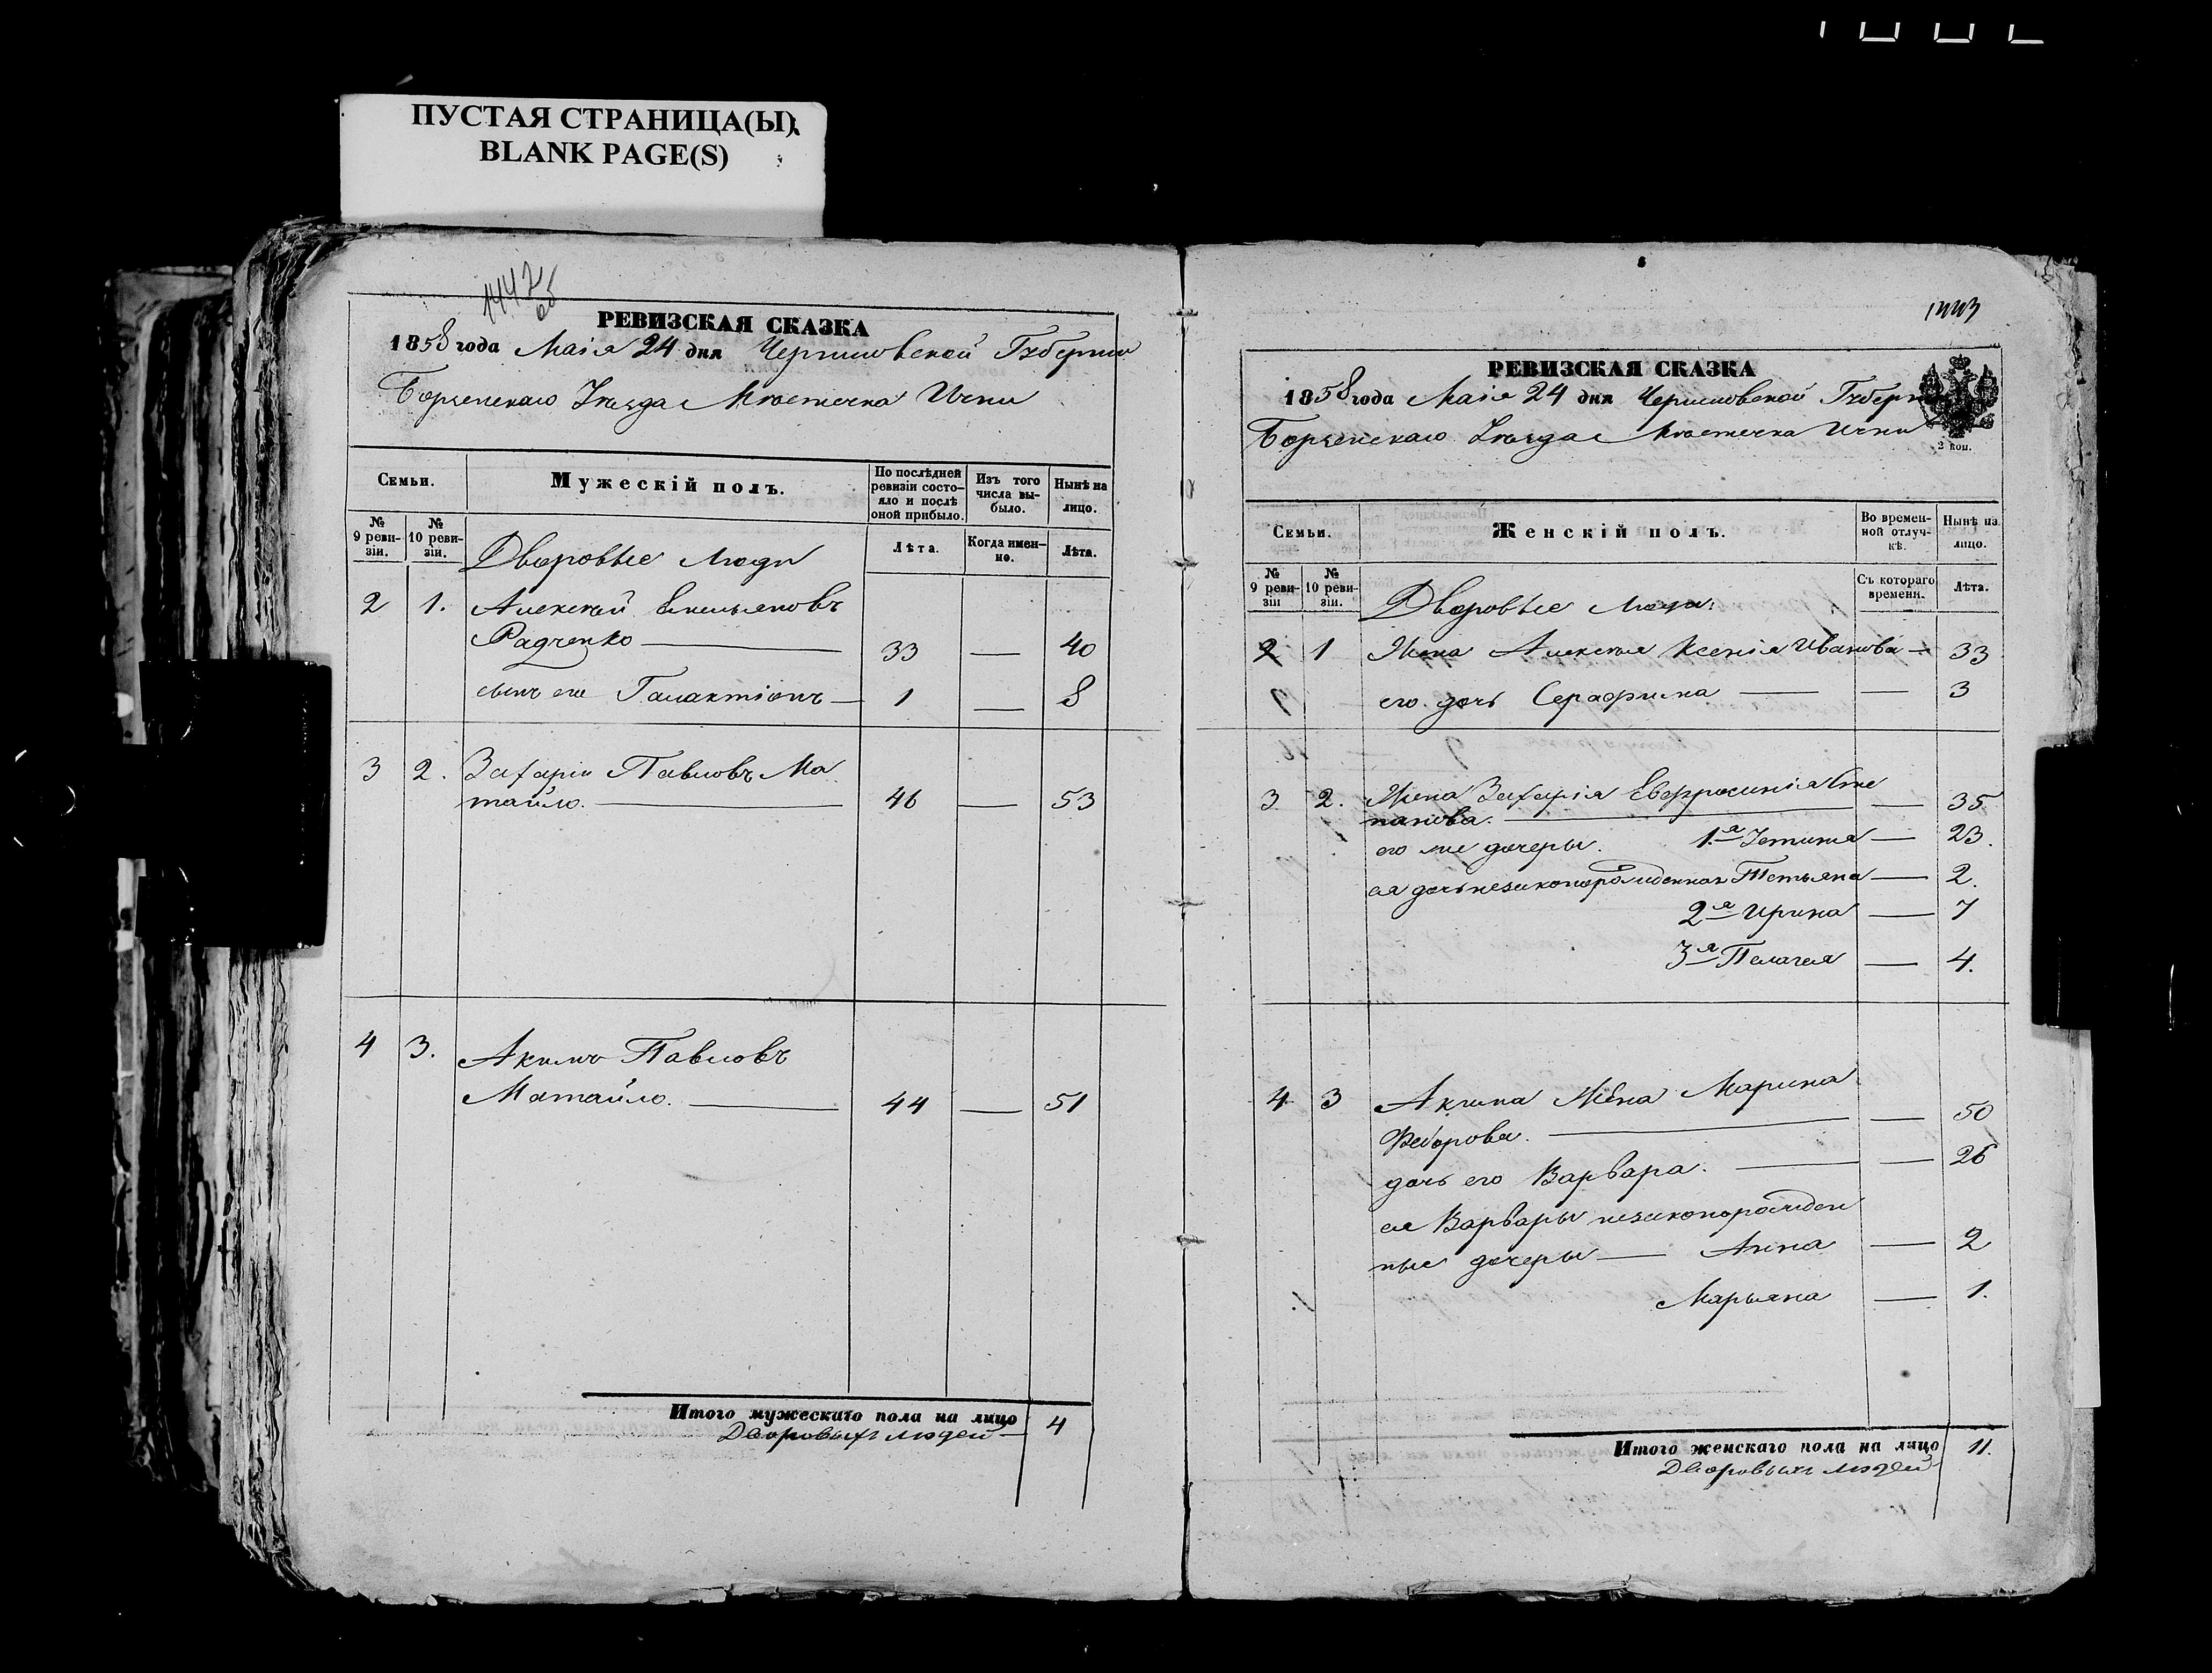 ПУСТАЯ СТРАНИЦА(Ы)
BLANK PAGE(S)
1442 об
РЕВИЗСКАЯ СКАЗКА
1858 года Маія 24 дня Черниговской Губерніи
Борзенскаго Уѣзда Мѣстечка Ични
Семьи.
Мужескій полъ.
По послѣдней ревизіи состо-
яло и послѣ
оной прибыло.
Изъ того
числа вы-
было.
Нынѣ на
лицо.
№
9 реви-
зіи.
№
10 реви-
зіи.
Лѣта.
Когда имен-
но.
Лѣта.
Дворовые Люди
2 1. Алексѣй Емельяновъ
Радченко — 33 — 40
сынъ его Галактіонъ — 1 — 8
3 2. Захарій Павловъ Ма
тайло. — 46 — 53
4 3. Акимъ Павловъ
Матайло. — 44 — 51
Итого мужескаго пола на лицо 4
Дворовыхъ людей —
1443
РЕВИЗСКАЯ СКАЗКА
1858 года Маія 24 дня Черниговской Губерніи
Борзенскаго Уѣзда Мѣстечка Ични
2 коп.
Семьи.
Женскій полъ.
Во времен-
ной отлуч-
кѣ.
Нынѣ на
лицо.
№
9 реви-
зіи
№
10 реви-
зіи.
Съ котораго
времени.
Лѣта.
Дворовые Люди
2 1 Жена Алексѣя Ксенія Иванова — 33
его дочь Серафима — — 3
3 2. Жена Захарія Евфросинія Сте
панова. — — 35
его же дочеры. 1.я Устинія — 23.
ея дочь незаконорожденная Тетьяна — 2.
2я Ирина — 7
3я Пелагея — 4.
4 3 Акима Жена Марина
Федорова. — — 50
дочь его Варвара. — — 26
ея Варвары незаконорожден
ные дочеры — Анна — 2
Марьяна — 1.
Итого женскаго пола на лицо 11.
Дворовыхъ людей